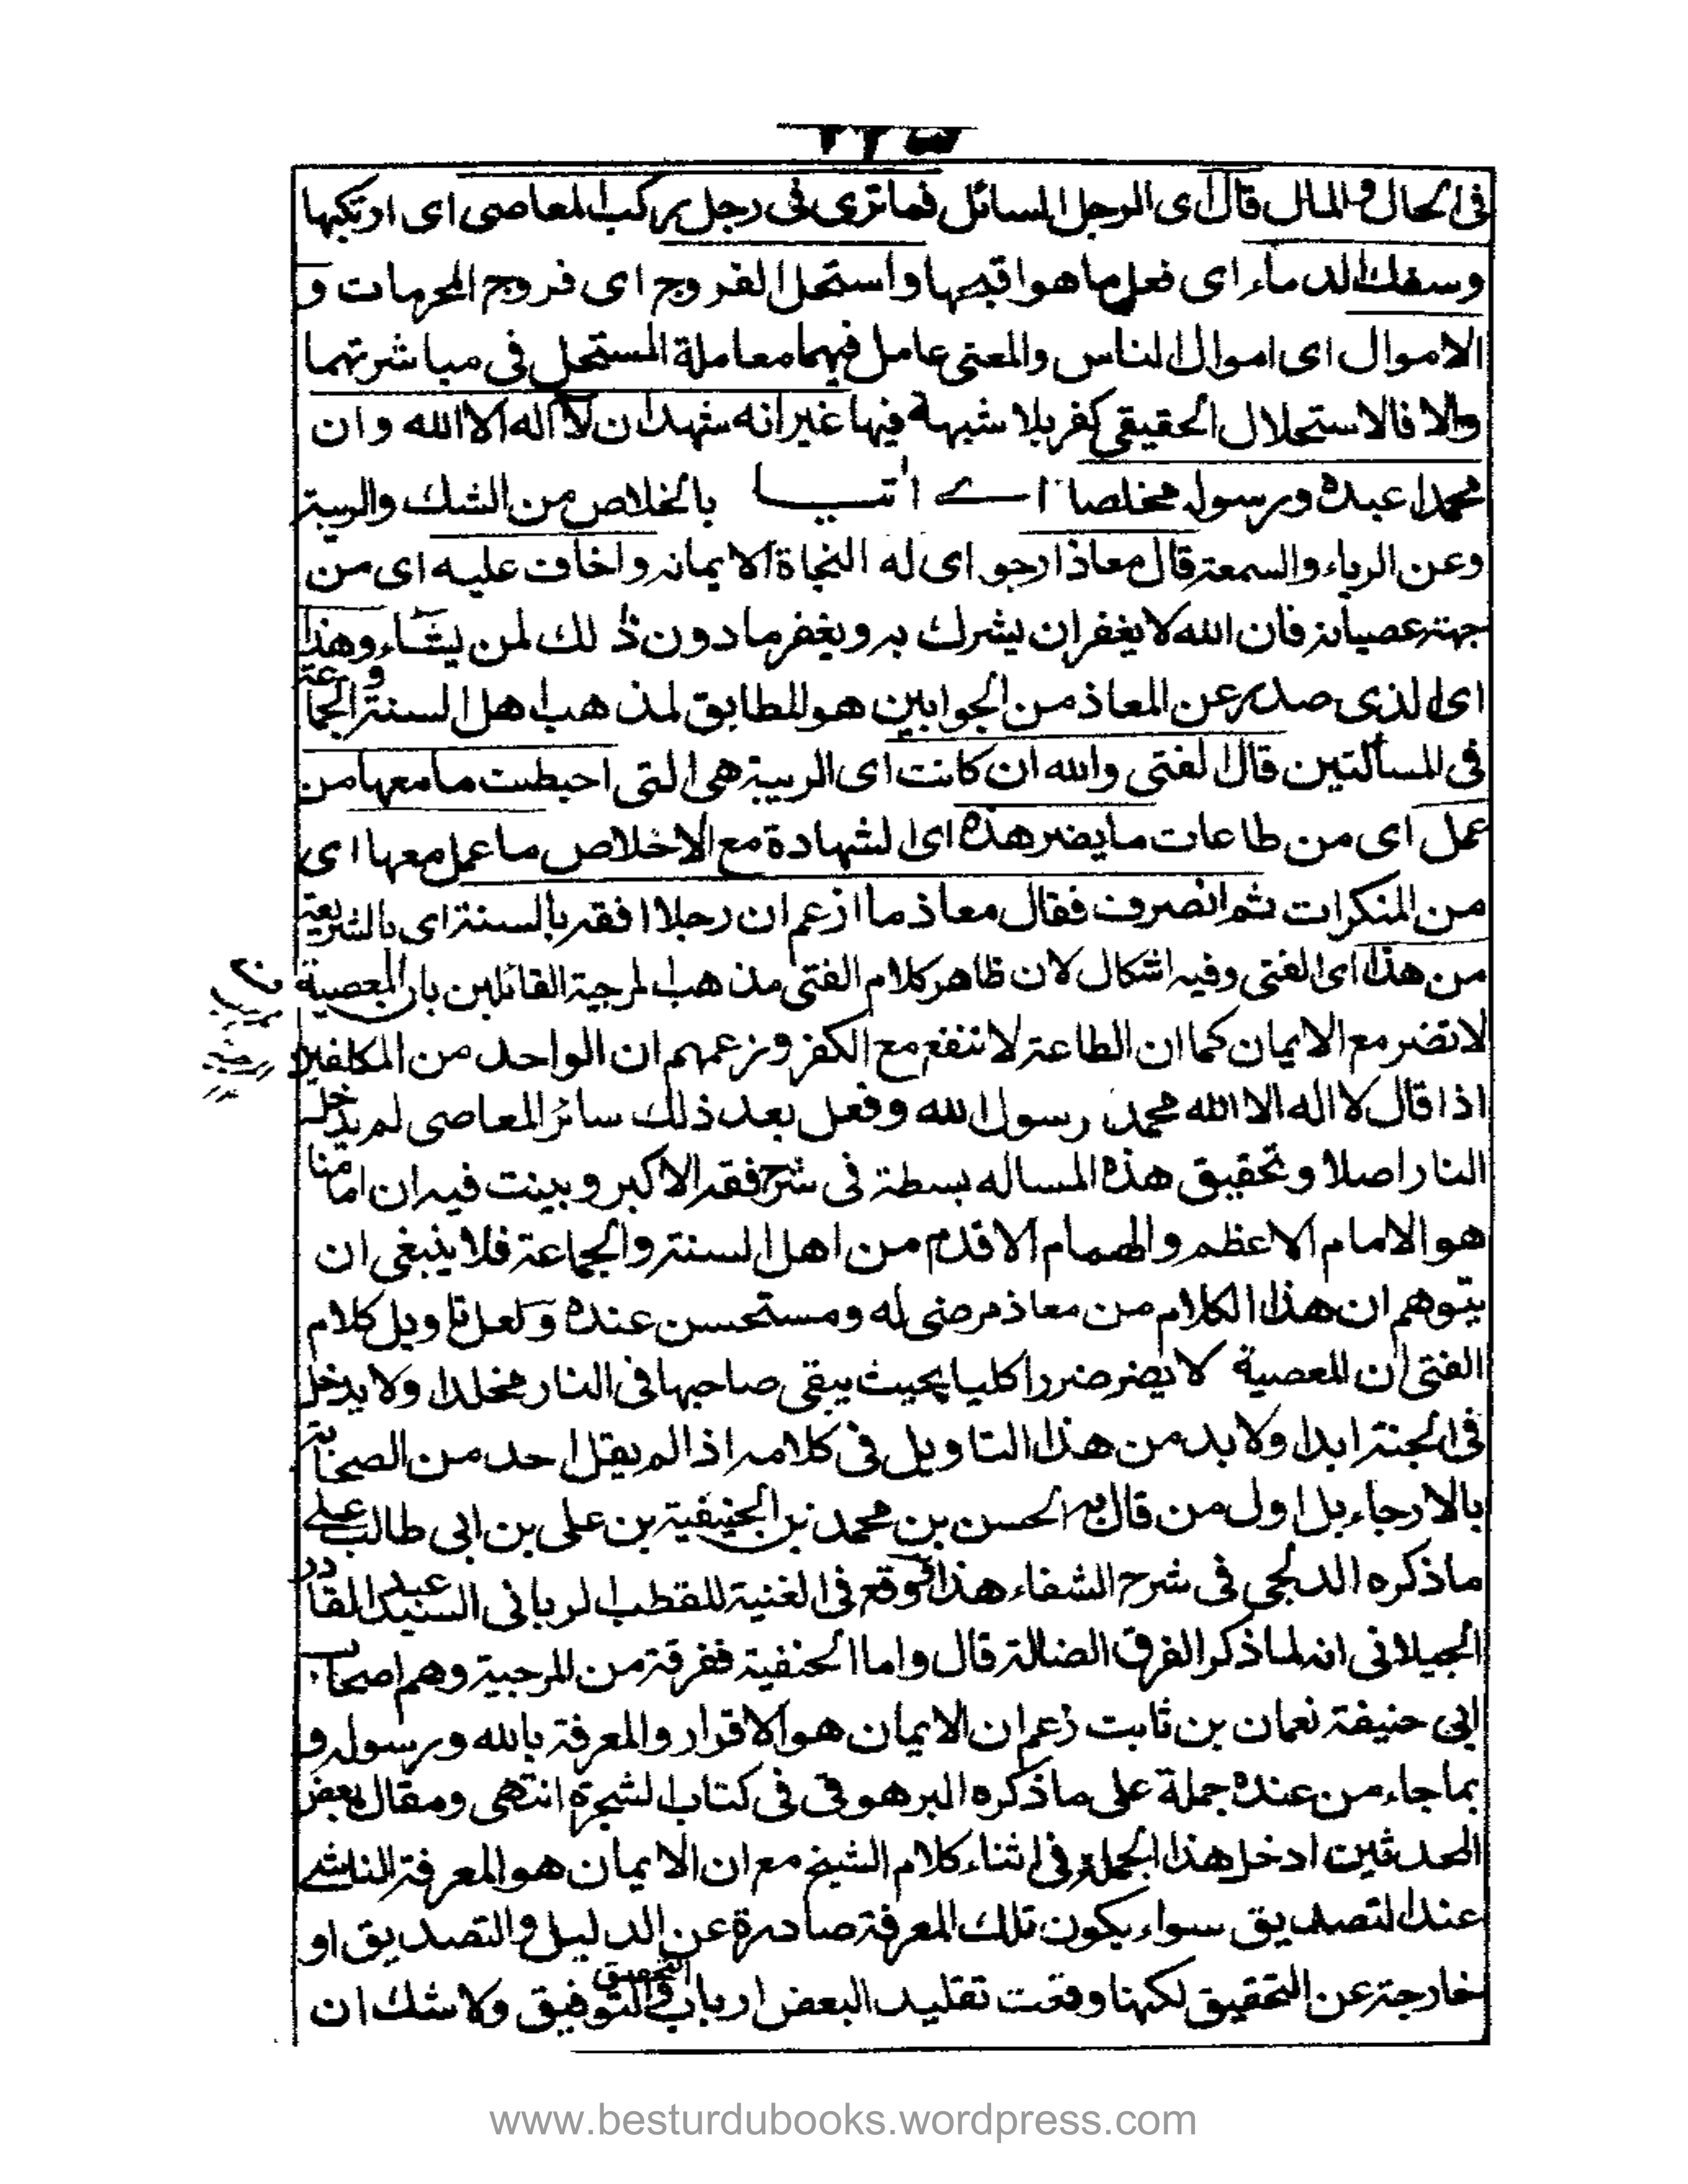 ٢٢٥
فى الحال والمال قال اى الرجل السائل فما ترى فى رجل ركب المعاصى اى ارتكبها
وسفك الدماء اى فعل ما هو اقبحها واستحل الفروج اى فروج المحرمات و
الاموال اى اموال الناس والمعنى عامل فيهما معاملة المستحل فى مباشرتهما
والا فالاستحلال الحقيقى كفر بلا شبهة فيها غير انه شهد ان لا اله الا الله وان
محمدا عبده ورسوله مخلصا اے اتيا بالخلاص من الشك والريبة
وعن الرياء والسمعة قال معاذ ارجو اى له النجاة لايمانه واخاف عليه اى من
جهة عصيانه فان الله لا يغفر ان يشرك به ويغفر ما دون ذلك لمن يشاء وهذا
اى الذى صدر عن المعاذ من الجوابين هو المطابق لمذهب اهل السنة والجماعة
فى المسألتين قال الفتى والله ان كانت اى الريبة هى التى احبطت ما معها من
عمل اى من طاعات ما يضر هذه اى الشهادة مع الاخلاص ما عمل معها اى
من المنكرات ثم انصرف فقال معاذ ما ازعم ان رجلا افقه بالسنة اى بالشريعة
من هذا اى الفتى وفيه اشكال لان ظاهر كلام الفتى مذهب المرجية القائلين بان المعصية
لا تضر مع الايمان كما ان الطاعة لا تنفع مع الكفر وزعمهم ان الواحد من المكلفين
اذا قال لا اله الا الله محمد رسول الله وفعل بعد ذلك سائر المعاصى لم يدخل
النار اصلا وتحقيق هذه المساله بسطته فى شرح فقه الاكبر وبينت فيه ان امامنا
هو الامام الاعظم والهمام الاقدم من اهل السنة والجماعة فلا ينبغى ان
يتوهم ان هذا الكلام من معاذ مرضى له ومستحسن عنده ولعل تاويل كلام
الفتى ان المعصية لا يضر ضررا كليا بحيث يبقى صاحبها فى النار مخلدا ولا يدخل
فى الجنة ابدا ولا بد من هذا التاويل فى كلامه اذا لم يقل احد من الصحابة
بالارجاء بل اول من قال به الحسن بن محمد بن الحنيفية بن على بن ابى طالب على
ما ذكره الدلجى فى شرح الشفاء هذا ووقع فى الغنية للقطب الربانى السيد عبد القادر
الجيلانى انه لما ذكر الفرق الضالة قال واما الحنفية ففرقة من المرجية وهم اصحاب
ابى حنيفة نعمان بن ثابت زعم ان الايمان هو الاقرار والمعرفة بالله ورسوله و
بما جاء من عنده جملة على ما ذكره البرهوقى فى كتاب الشجرة انتهى ومقال بعض
المحدثين ادخل هذا الجملة فى اثناء كلام الشيخ مع ان الايمان هو المعرفة الناشے
عند التصديق سواء يكون تلك المعرفة صادرة عن الدليل والتصديق او
خارجة عن التحقيق لكنها وقعت تقليد البعض ارباب التحقيق والتوفيق ولا شك ان
www.besturdubooks.wordpress.com